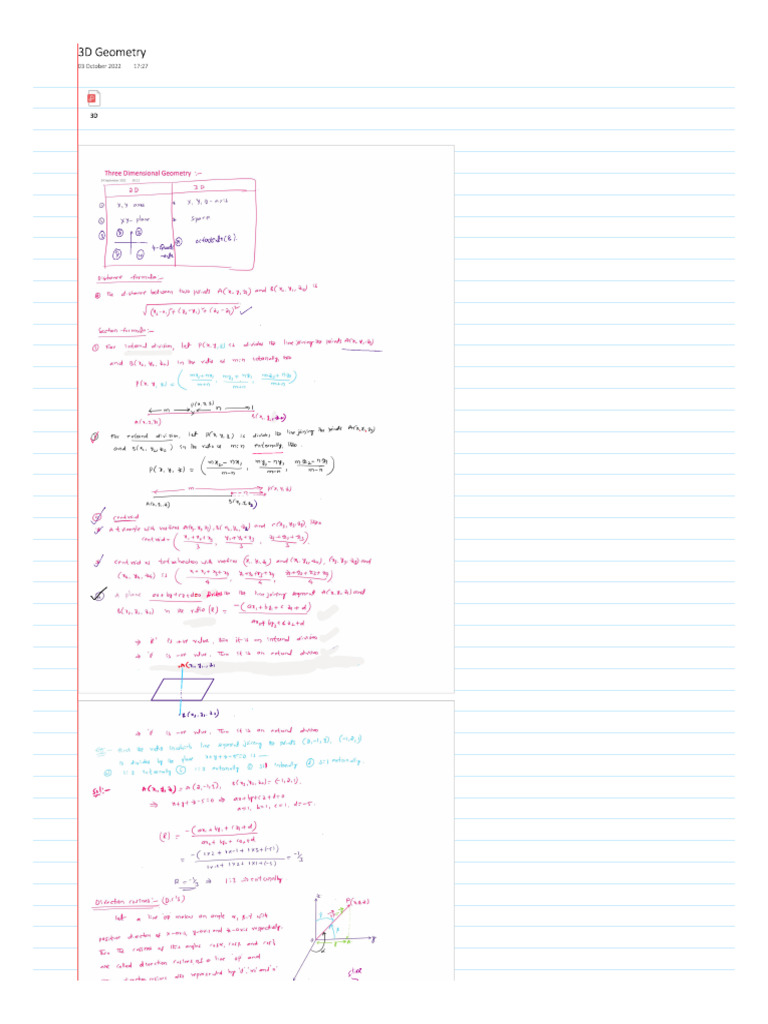 3D Geometry
03 October 2022 17:27
3D
Three Dimensional Geometry :-
2D 3D
① X, Y axes * X, Y, Z - axis
② XY- plane * space
③ 4-Quadr-ants octagents (8).
Distance formula:-
The distance between two points A(x, y, z) and B(x₂, y₂, z₂) is
√(x₂-x₁)²+(y₂-y₁)²+(z₂-z₁)²
Section formula:-
① For internal division, let P(x, y, z) is divides the line joining the points A(x,y,z)
and B(x₂, y₂, z₂) in the ratio of m:n internally, then
P(x, y, z) = (mx₂+nx₁/m+n, my₂+ny₁/m+n, mz₂+nz₁/m+n)
P(x, y, z)
m n
A(x,y,z) B(x, y, z₂)
② For external division, let P(x, y, z) is divides the line joining the points A(x,y,z)
and B(x₂, y₂, z₂) in the ratio of m:n externally, then.
P(x, y, z) = (mx₂-nx₁/m-n, my₂-ny₁/m-n, mz₂-nz₁/m-n)
m n P(x, y, z)
A(x, y, z) B(x, y, z)
centroid
* A triangle with vertices A(x₁,y₁,z₁), B(x₂,y₂,z₂) and C(x₃,y₃,z₃), then
centroid = (x₁+x₂+x₃/3, y₁+y₂+y₃/3, z₁+z₂+z₃/3)
* centroid of tetrahedron with vertices (x, y, z) and (x₂,y₂,z₂), (x₃,y₃,z₃) and
(x₄, y₄, z₄) is (x₁+x₂+x₃+x₄/4, y₁+y₂+y₃+y₄/4, z₁+z₂+z₃+z₄/4)
A plane ax+by+cz+d=0 divides the line joining segment A(x,y,z) and
B(x₂, y₂, z₂) in the ratio (k) = -(ax₁+by₁+cz₁+d)/ax₂+by₂+cz₂+d
→ 'k' is +ve value, then it is an internal division
→ 'k' is -ve value, then it is an external division
A(x, y, z)
B(x₂, y₂, z₂)
→ 'k' is -ve value, then it is an external division
the ratio line segment joining the points (2,-1,3), (-1,2,1)
is divided by the plane x+y+z-5=0 is —
internally externally internally externally.
Sol:- A(x, y, z) = A(2,-1,3), B(x₂,y₂,z₂) = (-1,2,1).
⇒ x+y+z-5=0 ⇒ ax+by+cz+d=0
a=1, b=1, c=1, d=-5.
(k) = -(ax₁+by₁+cz₁+d)/ax₂+by₂+cz₂+d
= -1/3
k = -1/3 ⇒ 1:3 externally
Direction cosines:- (D.C's)
Let a line op makes an angle α, β, γ with
positive direction of x-axis, y-axis and z-axis respectively.
Then the cosines of these angles cosα, cosβ and cosγ
are called direction cosines of a line op and
direction cosines are represented by 'l', 'm' and 'n'
z
P(x,y,z)
y